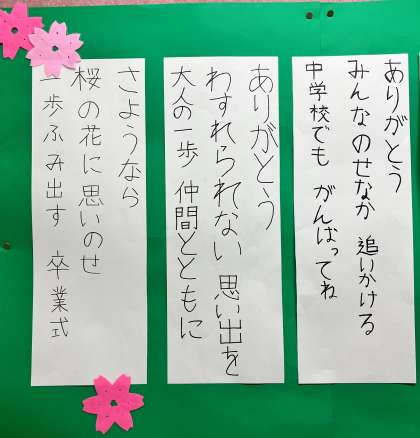 ありがとう
みんなのせなか 追いかける
中学校でも がんばってね
ありがとう
わすれられない 思い出を
大人の一歩 仲間とともに
さようなら
桜の花に思いのせ
一歩ふみ出す 卒業式